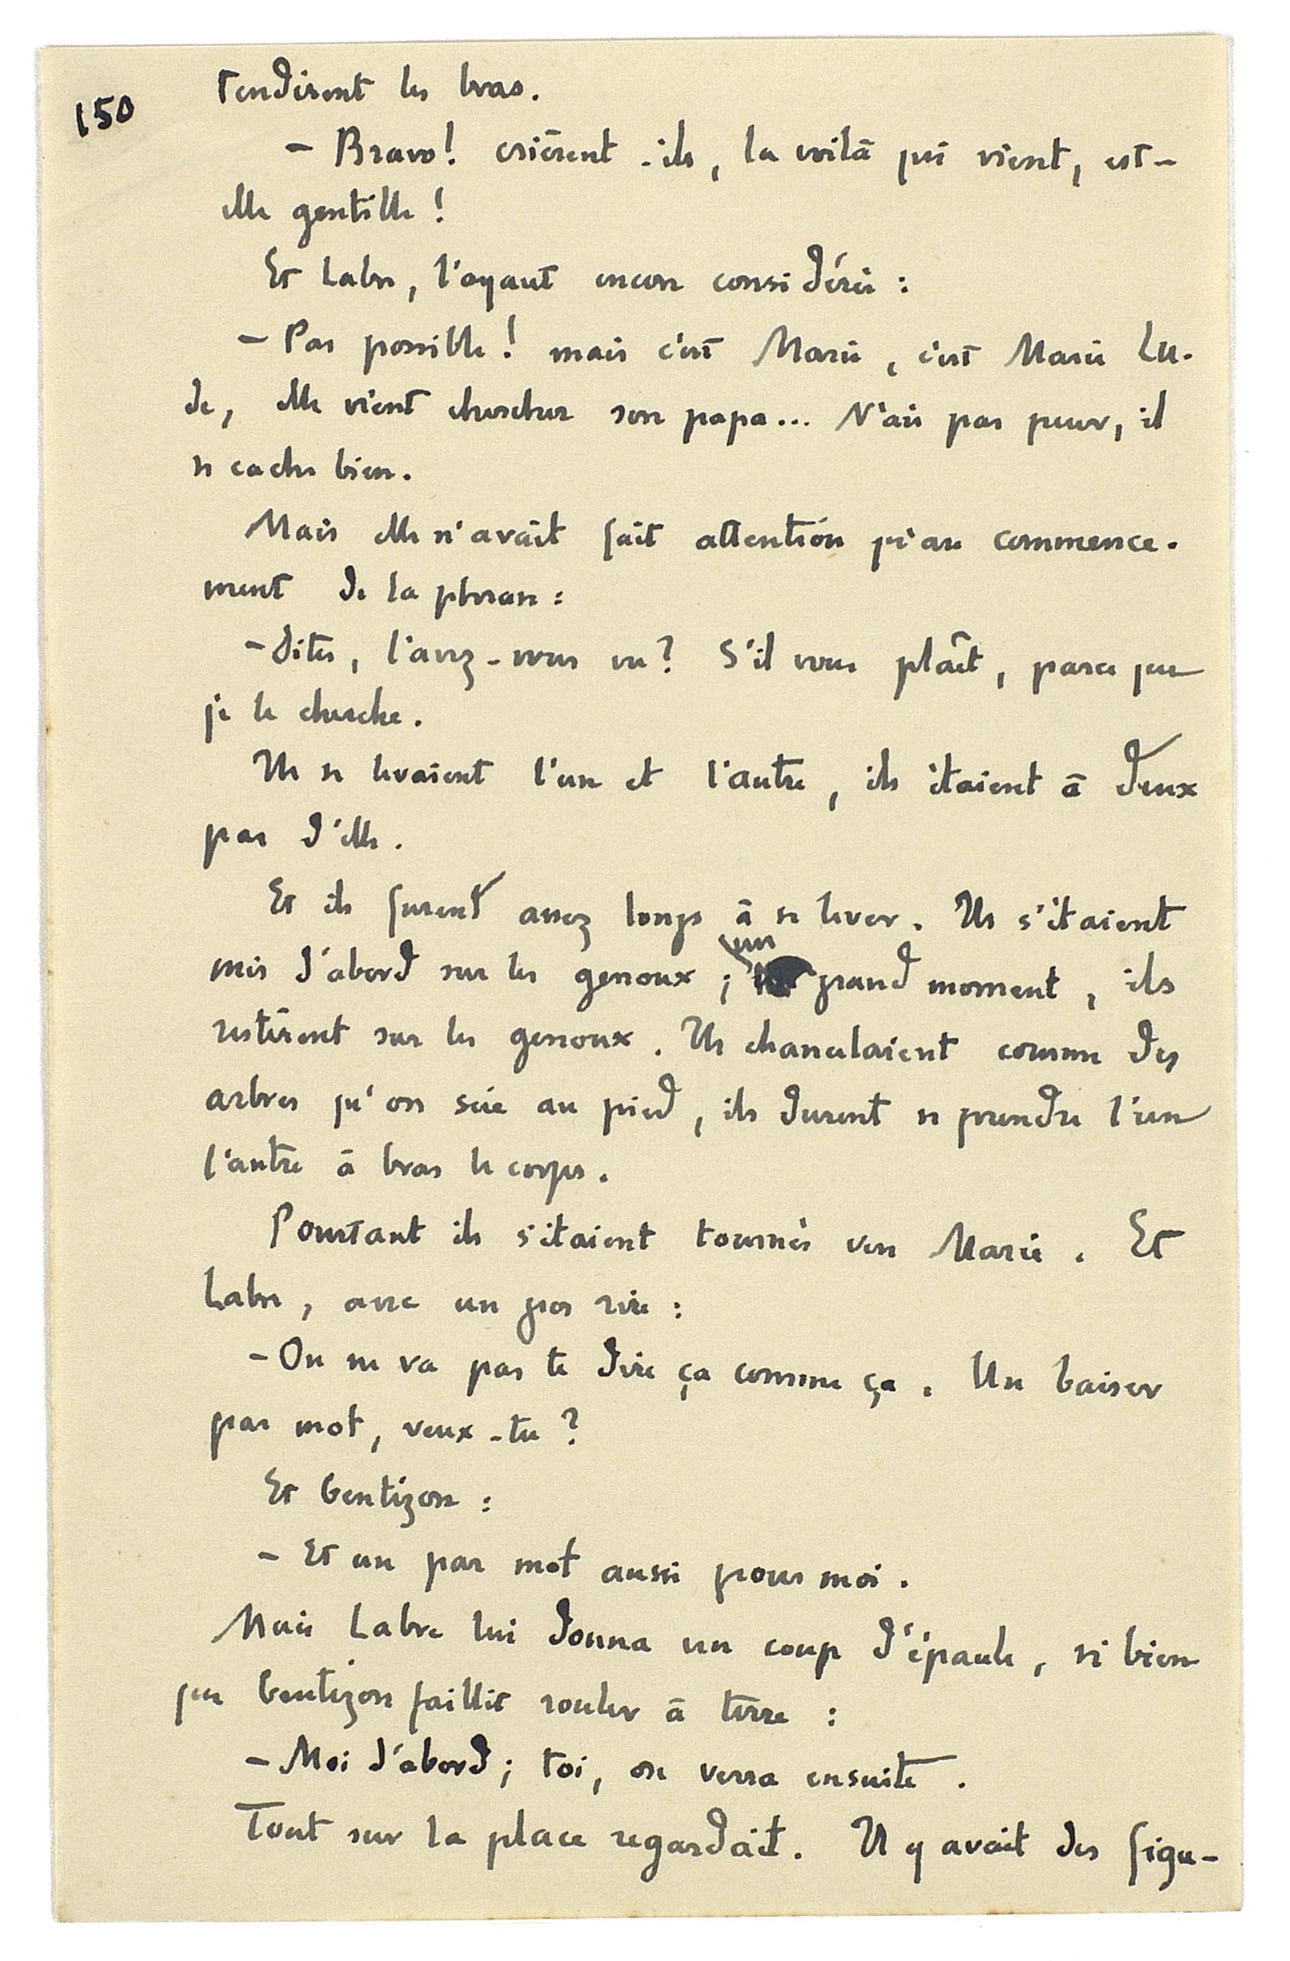 150
tendirent les bras.
– Bravo! crièrent-ils, la voilà qui vient, est-
elle gentille!
Et Labre, l'ayant encore considérée :
– Pas possible! mais c'est Marie, c'est Marie Lu-
de, elle vient chercher son papa... N'aie pas peur, il
se cache bien.
Mais elle n'avait fait attention qu'au commence-
ment de la phrase :
– Dites, l'avez-vous vu? S'il vous plaît, parce que
je le cherche.
Ils se levaient l'un et l'autre, ils étaient à deux
pas d'elle.
Et ils furent assez longs à se lever. Ils s'étaient
mis d'abord sur les genoux ; un grand moment, ils
restèrent sur les genoux. Ils chancelaient comme des
arbres qu'on scie au pied, ils durent se prendre l'un
l'autre à bras le corps.
Pourtant ils s'étaient tournés vers Marie. Et
Labre, avec un gros rire :
– On ne va pas te dire ça comme ça. Un baiser
par mot, veux-tu?
Et Gentizon :
– Et un par mot aussi pour moi.
Mais Labre lui donna un coup d'épaule, si bien
que Gentizon faillit rouler à terre :
– Moi d'abord; toi, on verra ensuite.
Tout sur la place regardait. Il y avait des figu-